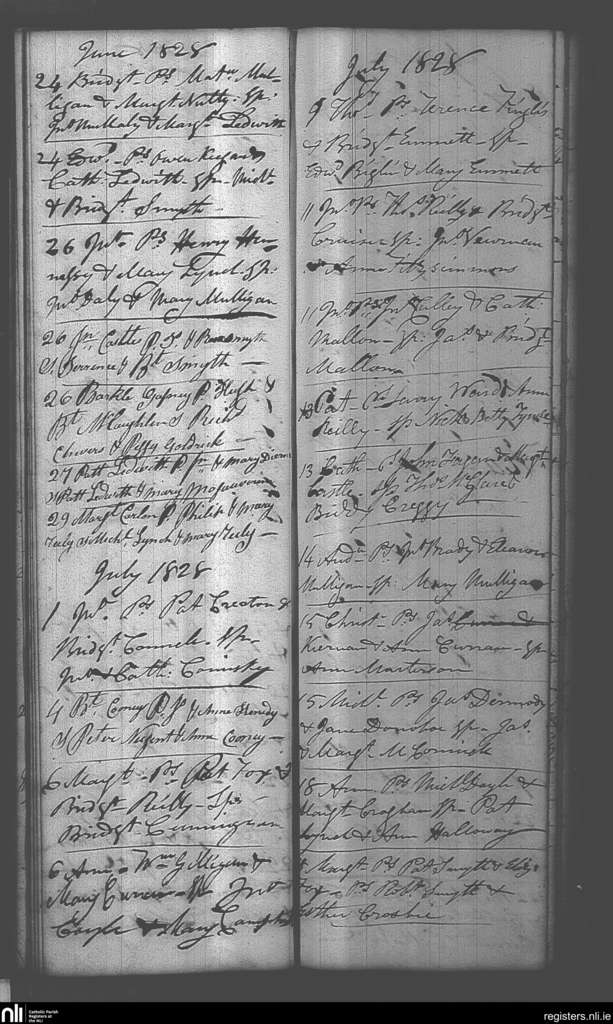 June 1828
24 Bridgt. Ps. Matw. Mul-
ligan & Margt Nulty. Sp:
Jno Mullaly & Margt. Ledwith
24 Edwd. Ps Owen Keegan &
Cath: Ledwith Sp Michl.
& Bridgt. Smyth
26 Jno. Ps Henry Hen-
nessy & Mary Lynch Sp:
Jno Daly & Mary Mulligan
26 Jn. Castle P. Js &
Terrence & Bt Smyth
26 Gafney P. Hugh &
Bt McLaughlin S
Chevers & Peggy Goldrick
27 Patt Ledwith P Jn & Mary
S Patt Ledwith & Mary
29 Margt Carlon P Philip & Mary
Tully S Michl. Lynch & Mary Tully
July 1828
1 Jno. Ps Pat Creaton &
Bridgt Connele. Sp.
Jno & Cath: Comisky
4 Bt Coney P. Js & Anne
S Peter Nugent & Anne Cooney
6 Margt. Ps. Pat Fox &
Bridgt Reilly Sp:
Bridgt Cunningham
6 Ann Wm Gilligan &
Mary Curran Sp Jno
Coyle & Mary
July 1828
9 Thos. Ps. Terence
& Bridgt. Emmett Sp
Edwd. & Mary Emmett
11 Jno. Ps Thos Reilly & Bridgt
Cruise Sp: Jno. Newman
& Anne Fitzsimmons
11 Jno. Ps Jno Calley & Cath:
Mallon Sp: Jas. & Bridgt
Mallon
13 Pat Ward & Anne
Reilly Sp Nichs Betty
13 Cath Ps John & Margt
Castle Sp Thos McCabe
Biddy Creggy
14 Andw. Ps Jno Brady & Eleanor
Mulligan Sp: Mary Mulligan
15 Christr Ps Jas
Kiernan & Ann Curran Sp
Ann Masterson
15 Michl. Ps Jas Dermody
& Jane Donohoe Sp Jas.
& Margt. McCormick
18 Ann Ps Michl Doyle &
Margt Croghan Sp Pat
Lynch & Ann Halloway
Margt Ps Pat Smyth & Eliz.
Fox Ps Robt. Smyth &
Esther Crosbie
nli
Catholic Parish
Registers at
the NLI
registers.nli.ie